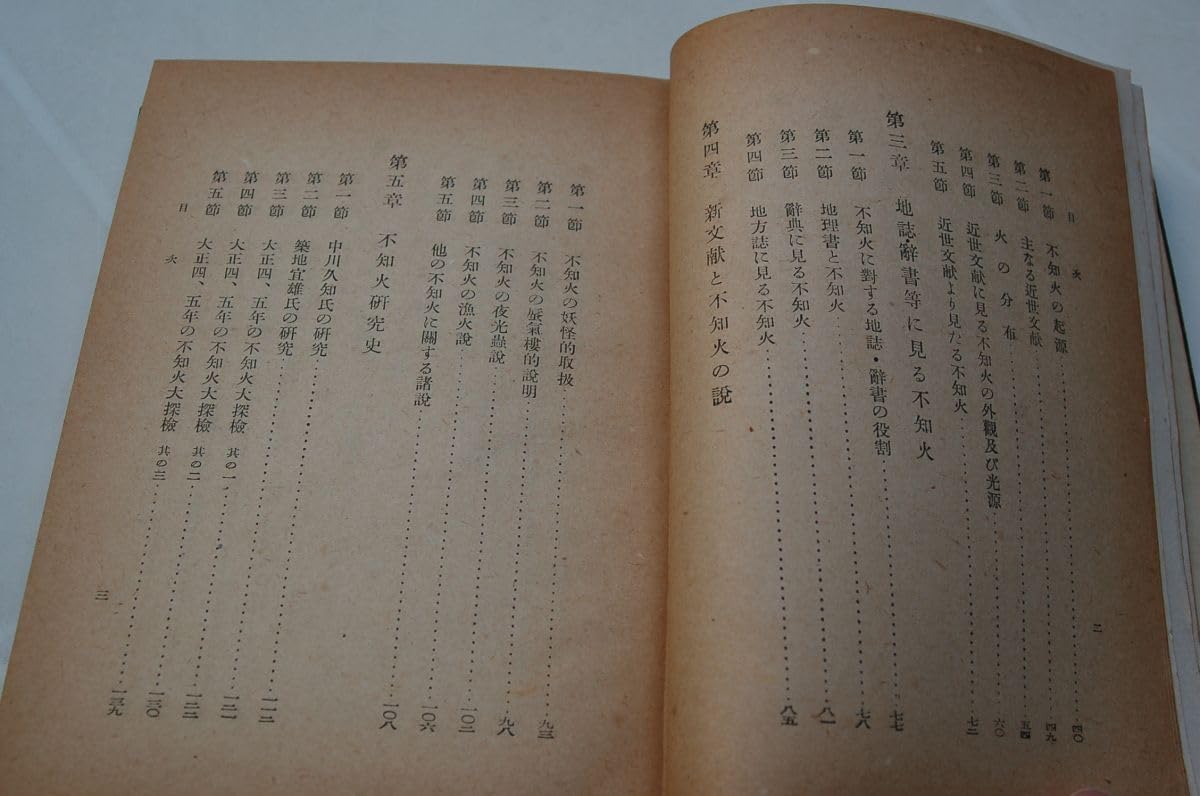 目次
第一節 不知火の起源……四〇
第二節 主なる近世文献……四九
第三節 火の分布……五四
第四節 近世文献に見る不知火の外觀及び光源……六〇
第五節 近世文献より見たる不知火……七二
第三章 地誌・辭書等に見る不知火
第一節 不知火に對する地誌・辭書の役割……七七
第二節 地理書と不知火……七八
第三節 辭典に見る不知火……八一
第四節 地方誌に見る不知火……八五
第四章 新文献と不知火の說
二
第一節 不知火の妖怪的取扱……九三
第二節 不知火の蜃氣樓的說明……九八
第三節 不知火の夜光蟲說……一〇二
第四節 不知火の漁火說……一〇六
第五節 他の不知火に關する諸說……一〇八
第五章 不知火硏究史
第一節 中川久知氏の硏究……一一二
第二節 築地宜雄氏の硏究……一二一
第三節 大正四、五年の不知火大探檢 其の一……一二二
第四節 大正四、五年の不知火大探檢 其の二……一三〇
第五節 大正四、五年の不知火大探檢 其の三……一三九
目次
三